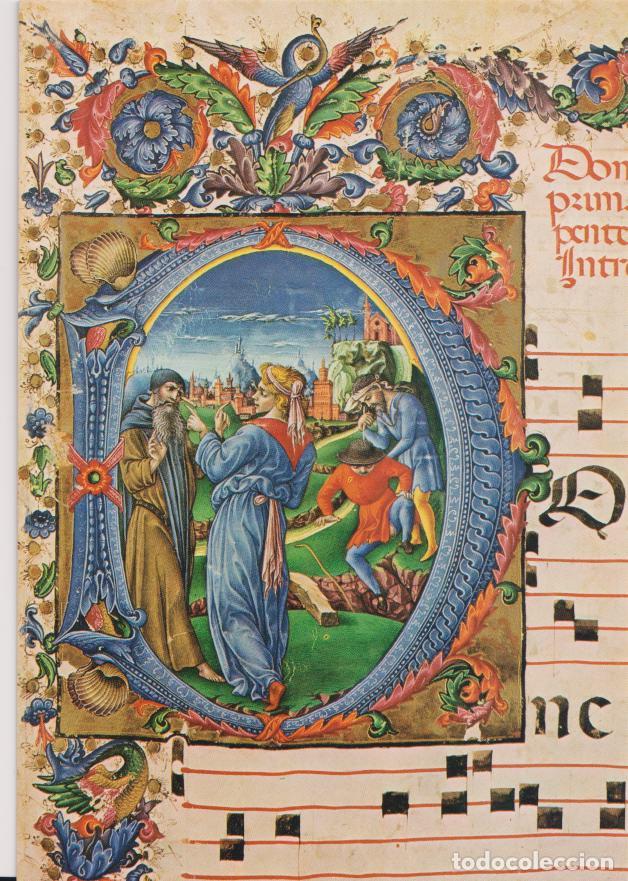 Dom
prim
pente
Intr
D
nc
todocoleccion